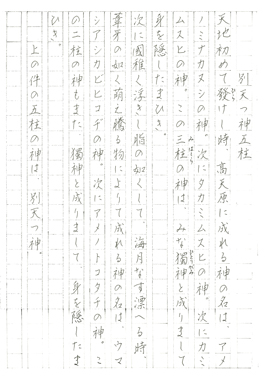 別天つ神五柱
天地初めて發けし時、高天原に成れる神の名は、アメ
ノミナカヌシの神。次にタカミムスヒの神。次にカミ
ムスヒの神。この三柱の神は、みな獨神と成りまして
身を隱したまひき。
次に國稚く浮きし脂の如くして、海月なす漂へる時、
葦芽の如く萌え騰る物によりて成れる神の名は、ウマ
シアシカビヒコヂの神。次にアメノトコタチの神。こ
の二柱の神もまた、獨神と成りまして、身を隱したま
ひき。
上の件の五柱の神は、別天つ神。